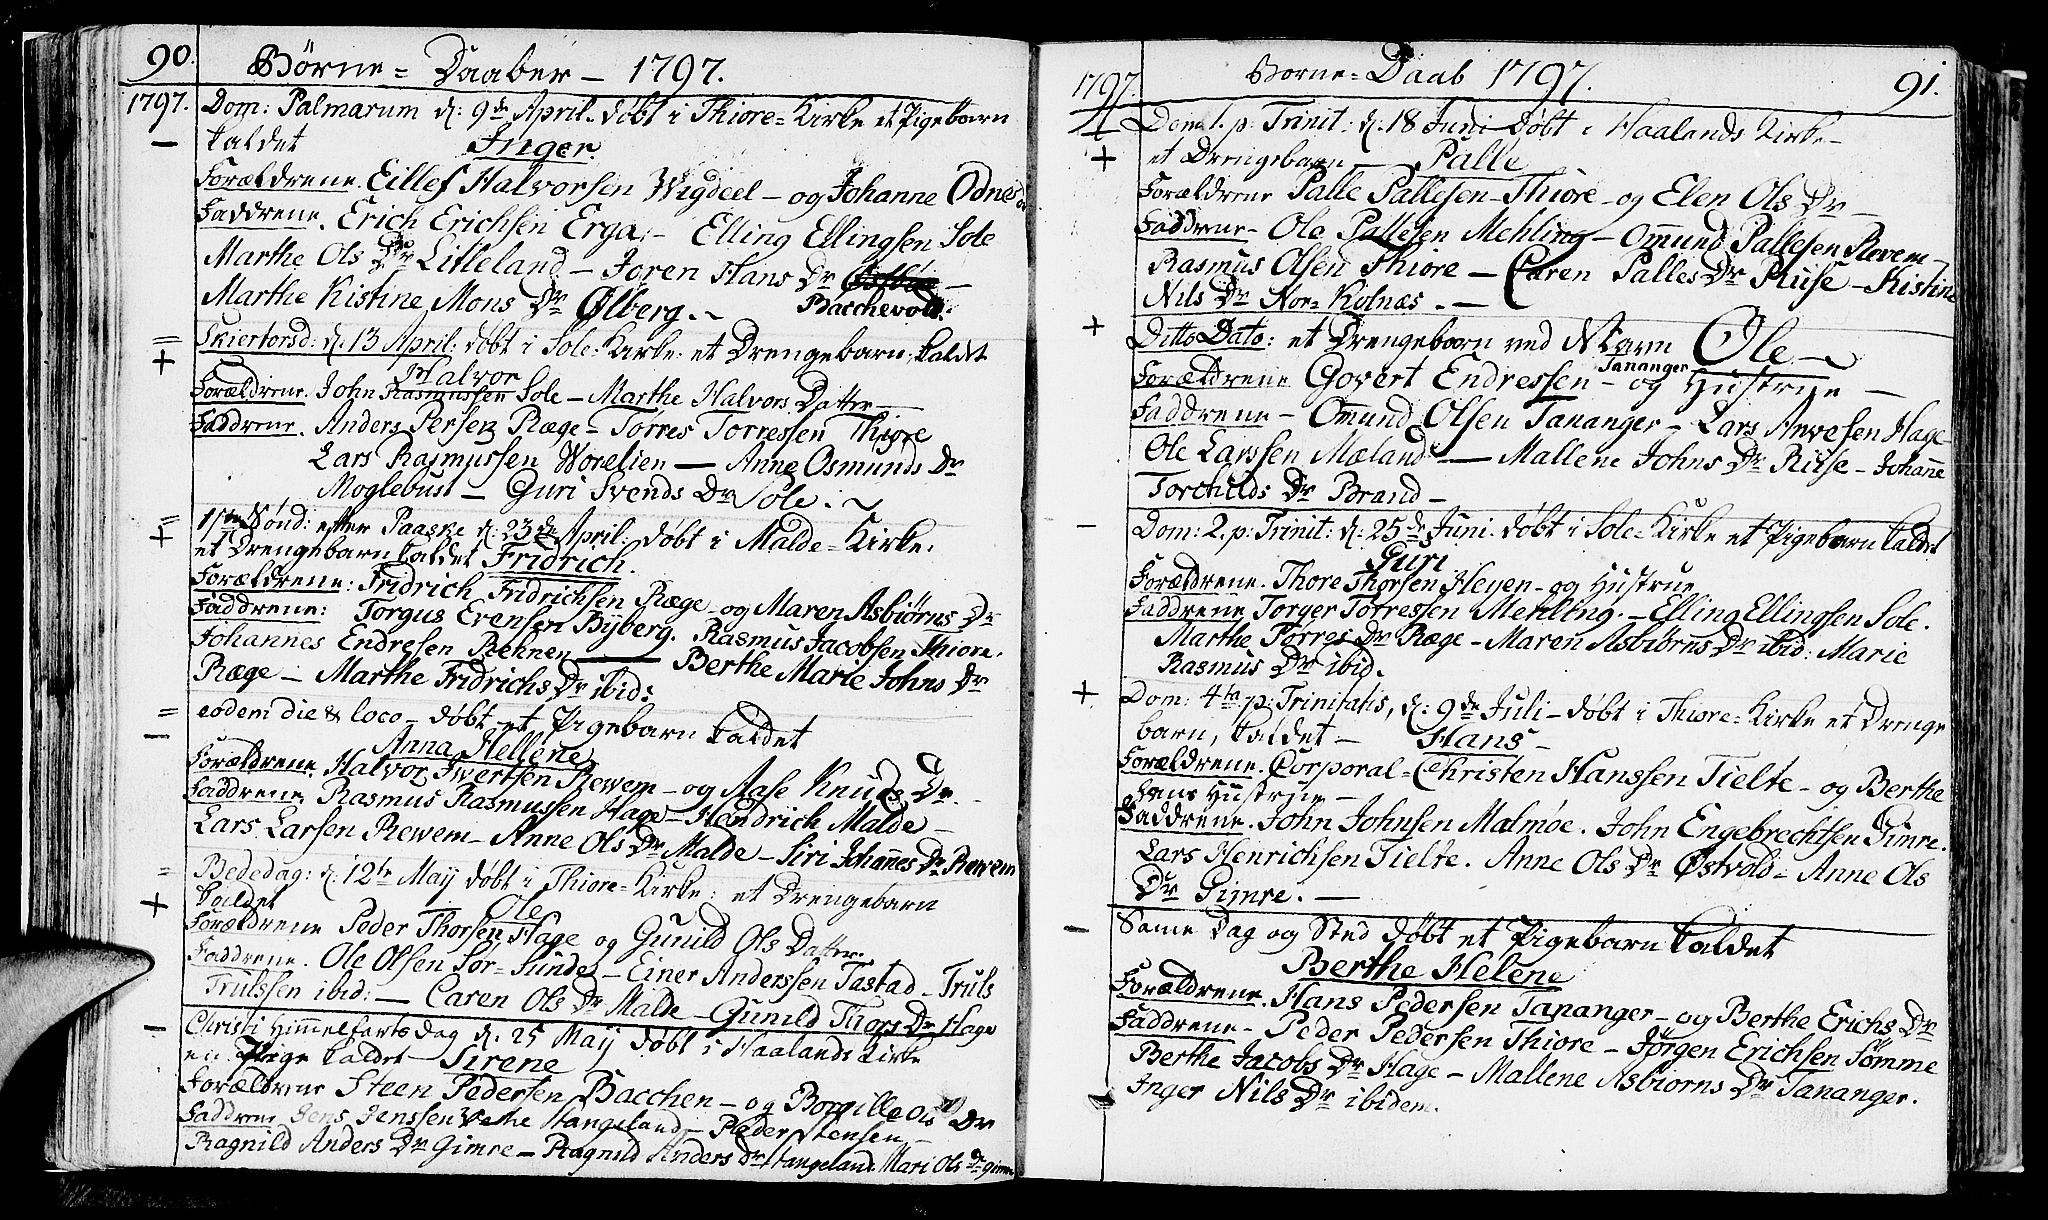 90.
Børne = Daaber - 1797.
1797. Dom: Palmarum d: 9de April. døbt i Thiore=Kirke et Pigebarn
kaldet Inger.
Forældrene. Eillef Halvorsen Wigdeel - og Johanne Odnes
Faddrene. Erich Erichsen Erga - Elling Ellingsen Sole
Marthe Ols Dr Litleland - Joren Hans Dr
Marthe Kistine Mons Dr Ølberg. Bacchevold.
Skiertorsd: d. 13 April: døbt i Sole=Kirke: et Drengebarn: kaldt
+ Halvor
Forældrene. John Rasmussen Sole - Marthe Halvors Datter -
Faddrene. Anders Persen Ræge - Torres Torressen Thiore
Lars Rasmussen Worelien - Anne Osmunds Dr
Moglebust - Guri Svends Dr Sole.
1ste Sønd: efter Paaske d: 23de April: døbt i Malde=Kirke.
+ et Drengebarn kaldet Fridrich.
Forældrene: Fridrich Fridrichsen Ræge - og Maren Asbiørns Dr
Faddrene: Torgus Evensen Byberg. Rasmus Jacobsen Thiore.
Johannes Endresen Rehnen - Berthe Marie Johns Dr
Ræge - Marthe Fridrichs Dr ibid:
eodem die & loco - døbt et Pigebarn kaldet
Anna Hellene
Forældrene. Halvor Iwertsen Rewem - og Aase Knuds Dr -
Faddrene. Rasmus Rasmussen Hage - Hendrich Malde -
Lars Larsen Rewem - Anne Ols Dr Malde - Siri Johannes Dr Rewem
Bededag: d: 12te Maij døbt i Thiore=Kirke: et Drengebarn
+ kaldet Ole
Forældrene Peder Thorsen Hage og Gunild Ols Datter.
Faddrene. Ole Olsen Sør-Sunde - Einer Anderssen Tastad - Truls
Trulssen ibid: - Caren Ols Dr Malde - Gunild Thors Dr Hage
Christi Himmelfarts Dag d. 25 Maij døbt i Haalands Kirke
en Pige kaldet - Sirene
Forældrene Steen Pedersen Bacchen - og Borgille Ols Dr
Faddrene Jens Jenssen Hangeland - Peder Stensen -
Ragnild Anders Dr Gimre - Ragnild Anders Dr Hangeland Mari Ols Dr Gimre
1797. Børne=Daab 1797. 91.
Dom 1. p: Trinit: d: 18 Juni døbt i Haalands Kirke -
+ et Drengebarn - Palle
Forældrene Palle Pallesen Thiore - og Elen Ols Dr -
Faddrene - Ole Pallesen Mehling - Omund Pallesen Revem -
Rasmus Olsen Thiore - Caren Palles Dr Ruse - Kistine
Nils Dr Nor=Kolnæs. -
+ Ditto Dato: et Drengebarn ved Navn Ole
Forældrene Govert Endressen - Tananger og Hustrue -
Faddrene - Omund Olsen Tananger - Lars Anvesen Hage -
Ole Larssen Mæland - Mallene Johns Dr Riise - Johanne
Torchilds Dr Brand -
- Dom: 2. p: Trinit: d: 25de Juni. døbt i Sole-Kirke et Pigebarn kaldet
Guri
Forældrene. Thore Thorsen Heyen - og Hustrue
Faddrene Torger Torressen Mehling. - Elling Ellingsen Sole.
Marthe Torres Dr Ræge - Maren Asbiørns Dr ibid: Marie
Rasmus Dr ibid.
+ Dom: 4ta p: Trinitatis, d: 9de Juli - døbt i Thiore=Kirke et Drenge
barn, kaldet - Hans -
Forældrene. Corporal - Christen Hanssen Tielte - og Berthe
hans Hustrue -
Faddrene. John Johnsen Malmøe. John Engebrechtsen Gimre.
Lars Henrichsen Tielte. Anne Ols Dr Østvold - Anne Ols
Dr Gimre. -
- Same Dag og Sted døbt et Pigebarn kaldet
Berthe Helene
Forældrene. Hans Pedersen Tananger - og Berthe Erichs Dr
Faddrene - Peder Pedersen Thiore - Jørgen Erichsen Sømme
Berthe Jacobs Dr Hage - Mallene Asbiorns Dr Tananger.
Inger Nils Dr ibidem.